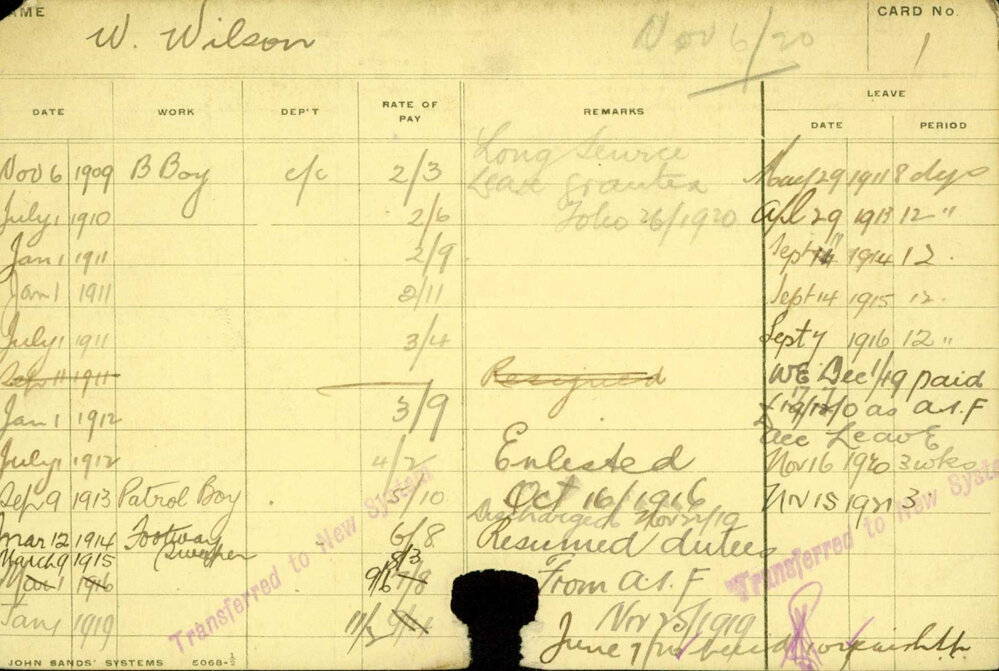 NAME
W. Wilson
Nov 6/20
CARD No.
1
DATE WORK DEP'T RATE OF PAY REMARKS LEAVE
DATE PERIOD
Long Service
Nov 6 1909 B Boy c/c 2/3 Leave granted May 29 1911 8 days
July 1 1910 2/6 Folio 26/1920 Apl 29 1913 12 "
Jan 1 1911 2/9 Sept 14 1914 12
Jan 1 1911 2/11 Sept 14 1915 12
July 1 1911 3/4 Sept 7 1916 12 "
Sep 11 1911 Resigned WE Dec 1/19 paid
Jan 1 1912 3/9 as A.I.F
Acc Leave
July 1 1912 4/2 Enlisted Nov 16 1920 3 wks
Sep 9 1913 Patrol Boy 5/10 Oct 16/1916 Nov 15 1921 3 "
Discharged Nov 22/19
Mar 12 1914 Footway Sweeper 6/8 Resumed duties
March 9 1915 8/3
1916 9/6 7/8 From A.I.F
Jan 1 1919 Nov 25/1919
June 7
Transferred to New System
Transferred to New System
JOHN SANDS' SYSTEMS 5068-½